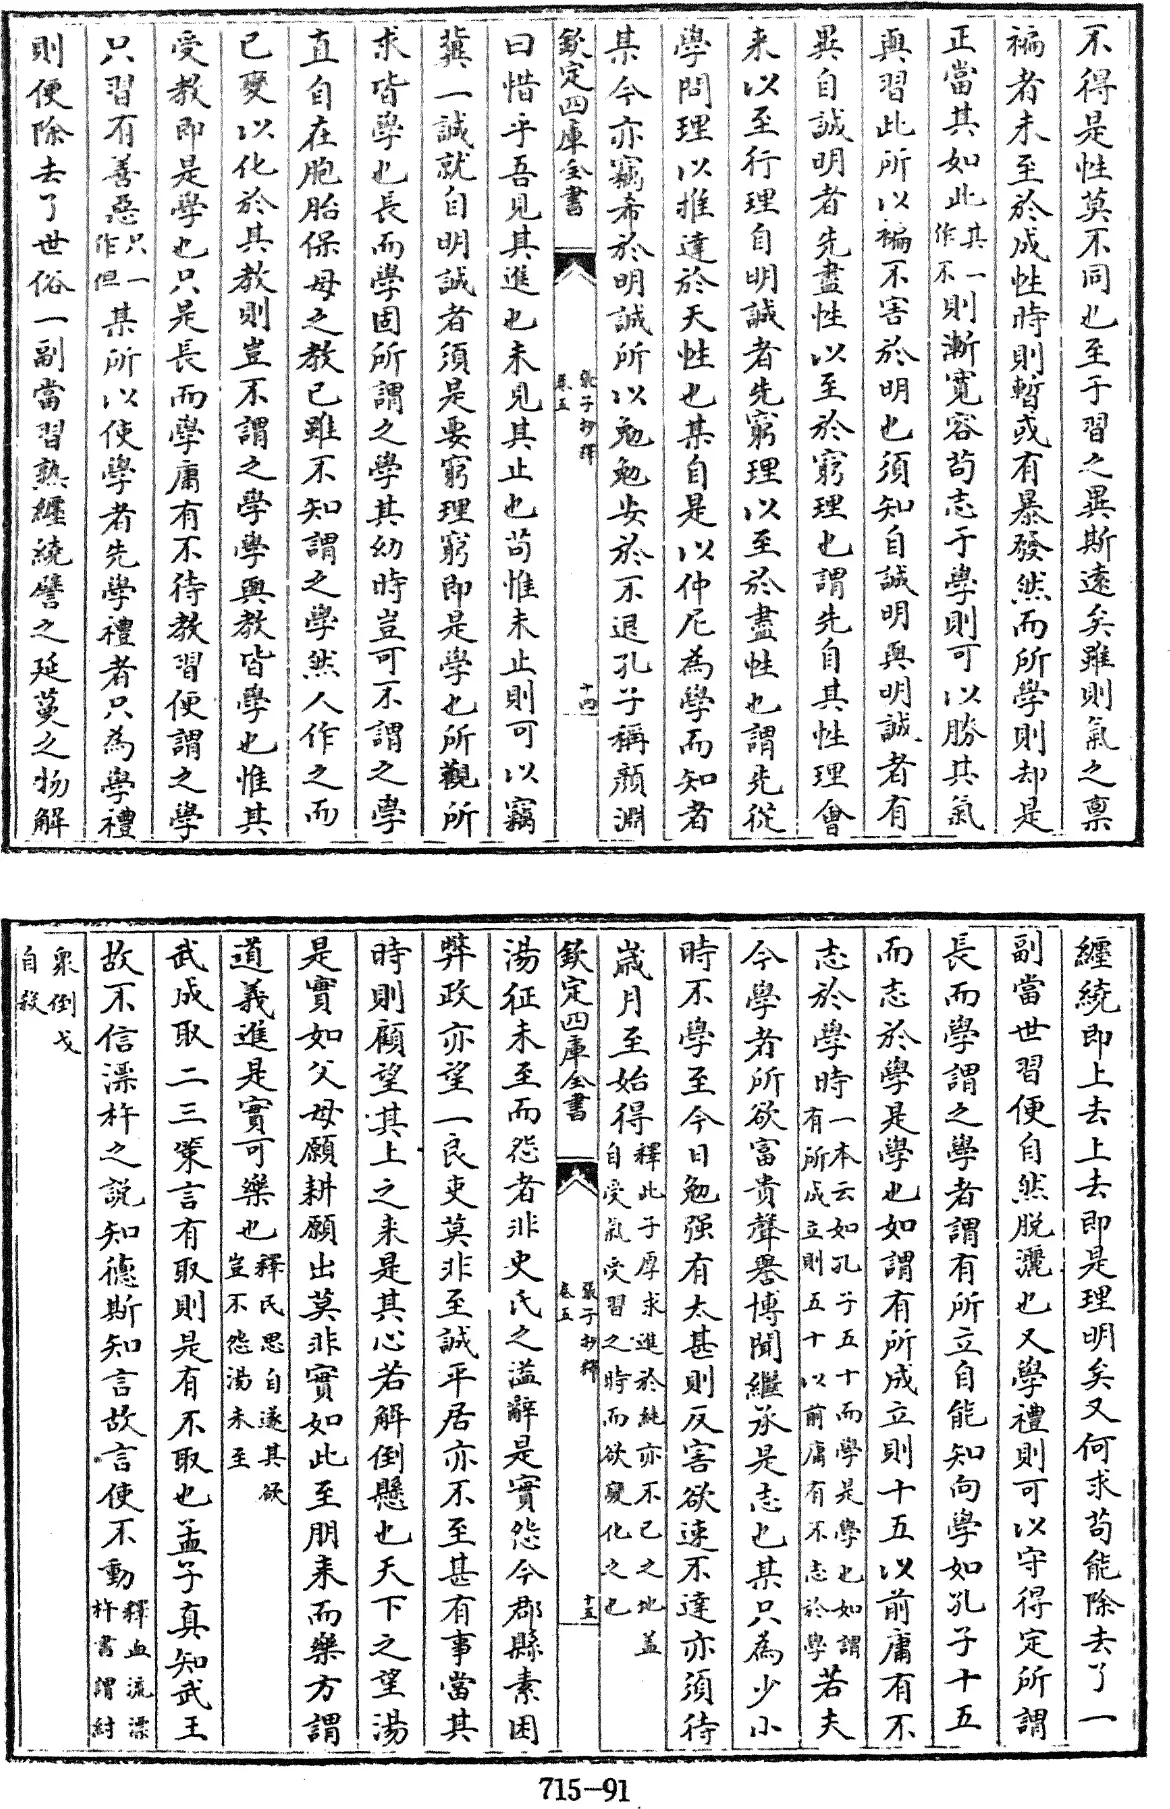 不得是性莫不同也至于習之異斯逺矣雖則氣之禀
褊者未至於成性時則暫或有暴發然而所學則却是
正當其如此其一作不則漸寛容苟志于學則可以勝其氣
與習此所以褊不害於明也須知自誠明與明誠者有
異自誠明者先盡性以至於窮理也謂先自其性理㑹
来以至行理自明誠者先窮理以至於盡性也謂先從
學問理以推達於天性也某自是以仲尼為學而知者
某今亦竊希於明誠所以勉勉安於不退孔子稱顔淵
欽定四庫全書
張子抄釋
卷五
十四
曰惜乎吾見其進也未見其止也苟惟未止則可以竊
冀一誠就自明誠者須是要窮理窮即是學也所觀所
求皆學也長而學固所謂之學其幼時豈可不謂之學
直自在胞胎保母之教已雖不知謂之學然人作之而
已變以化於其教則豈不謂之學學與教皆學也惟其
受教即是學也只是長而學庸有不待教習便謂之學
只習有善惡只一作但某所以使學者先學禮者只為學禮
則便除去了世俗一副當習熟纒繞譬之延蔓之物解
纒繞即上去上去即是理明矣又何求苟能除去了一
副當世習便自然脱灑也又學禮則可以守得定所謂
長而學謂之學者謂有所立自能知向學如孔子十五
而志於學是學也如謂有所成立則十五以前庸有不
志於學時一本云如孔子五十而學是學也如謂有所成立則五十以前庸有不志於學若夫
今學者所欲富貴聲譽博聞繼承是志也某只為少小
時不學至今日勉强有太甚則反害欲速不達亦須待
嵗月至始得釋此子厚求進於純亦不已之地盖自受氣受習之時而欲變化之也
欽定四庫全書
張子抄釋
卷五
十五
湯征未至而怨者非史氏之溢辭是實怨今郡縣素困
弊政亦望一良吏莫非至誠平居亦不至甚有事當其
時則顧望其上之来是其心若解倒懸也天下之望湯
是實如父母願耕願出莫非實如此至朋来而樂方謂
道義進是實可樂也釋民思自遂其欲豈不怨湯未至
武成取二三策言有取則是有不取也孟子真知武王
故不信漂杵之說知德斯知言故言使不動釋血流漂杵書謂紂
衆倒戈自殺
715-91